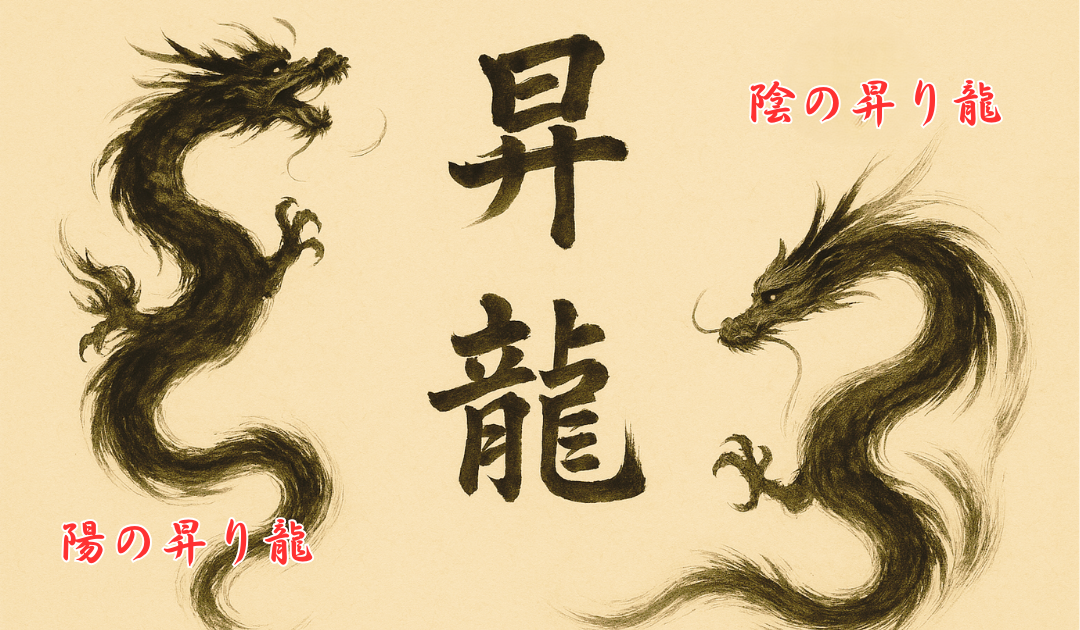 昇龍
陰の昇り龍
陽の昇り龍